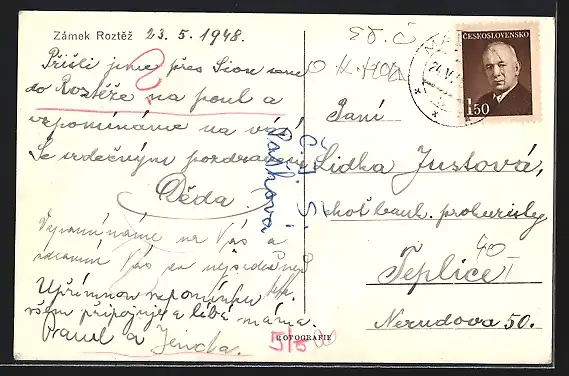 Zámek Roztěž 23. 5. 1948.
Přišli jsme přes Sion
do Roztěže na pouť a
vzpomínáme na vás
Se srdečným pozdravem
Děda
Vzpomínáme na Vás a
zdravím Vás co nejsrdečněji
Upřímnou vzpomínku
všem připojuje a líbá máma.
Pravel a Jenda.
ČESKOSLOVENSKO
1.50
Paní
Lidka Justová,
choť bank. prokuristy
40
Teplice I
Nerudova 50.
Pašková
FOTOGRAFIE
5/6